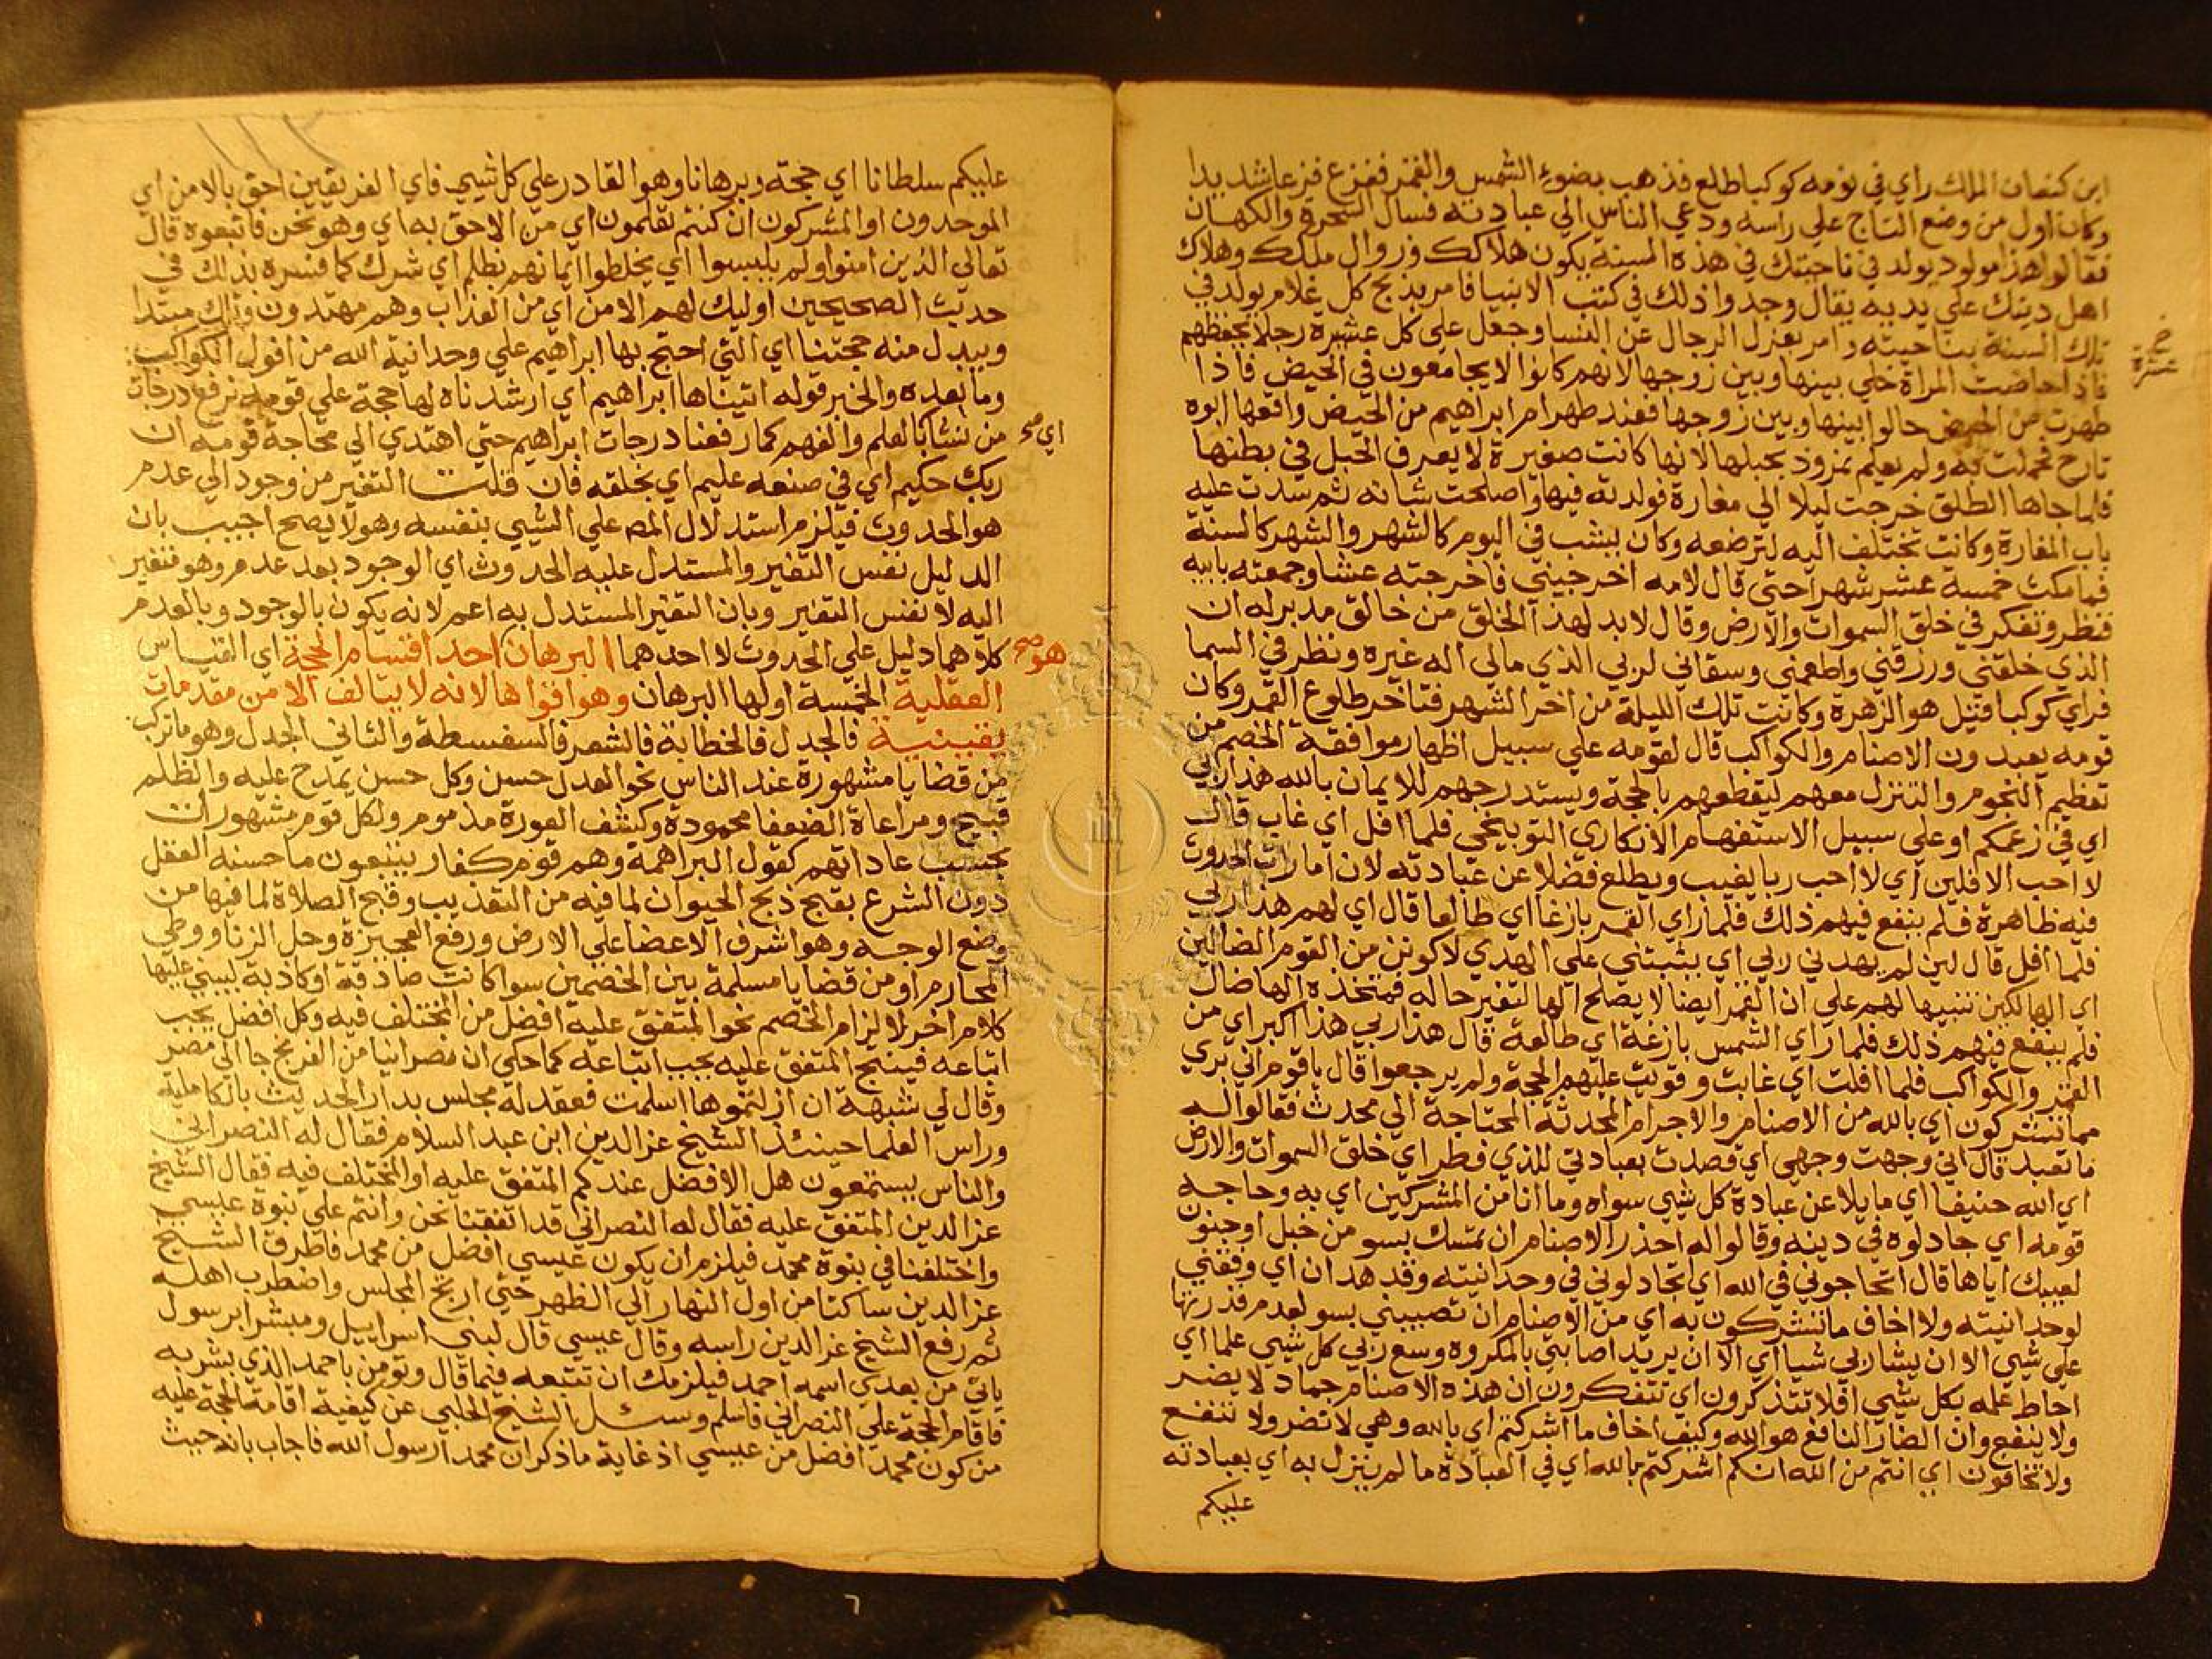 ابن كنعان الملك راي في نومه كوكبا طلع فذهب بضوء الشمس والقمر ففزع فزعا شديدا
وكان اول من وضع التاج علي راسه ودعي الناس الي عبادته فسال السحرة والكهان
فقالوا هذا مولود يولد في ناحيتك في هذه السنة يكون هلاكك وزوال ملكك وهلاك
اهل دينك علي يديه يقال وجدوا ذلك في كتب الانبيا فامر بذبح كل غلام يولد في
تلك السنة بناحيته وامر بعزل الرجال عن النسا وجعل علي كل عشرة رجلا يحفظهم
فاذا حاضت المراة خلي بينها وبين زوجها لانهم كانوا لا يجامعون في الحيض فاذا
طهرت من الحيض حالوا بينها وبين زوجها فعند طهر ام ابراهيم من الحيض واقعها ابوه
تارح فحملت به ولم يعلم نمرود بحبلها لانها كانت صغيرة لا يعرف الحبل في بطنها
فلما جاها الطلق خرجت ليلا الي مغارة فولدته فيها واصلحت شانه ثم سدت عليه
باب المغارة وكانت تختلف اليه لترضعه وكان يشب في اليوم كالشهر والشهر كالسنة
فما مكث خمسة عشر شهرا حتي قال لامه اخرجيني فاخرجته عشا وجمعته بابيه
فنظر وتفكر في خلق السموات والارض وقال لا بد لهذا الخلق من خالق مدبر له ان
الذي خلقني ورزقني واطعمني وسقاني لربي الذي مالي اله غيره ونظر في السما
فراي كوكبا قيل هو الزهرة وكانت تلك الليلة من اخر الشهر فتاخر طلوع القمر وكان
قومه يعبدون الاصنام والكواكب قال لقومه علي سبيل اظهار موافقة الخصم من
تعظيم النجوم والتنزل معهم ليقطعهم بالحجة ويستدرجهم للايمان بالله هذا ربي
اي في زعمكم او علي سبيل الاستفهام الانكاري التوبيخي فلما افل اي غاب قال
لا احب الافلين اي لا احب ربا يغيب ويطلع فضلا عن عبادته لان امارات الحدوث
فيه ظاهرة فلم ينفع فيهم ذلك فلما راي القمر بازغا اي طالعا قال اي لهم هذا ربي
فلما افل قال لين لم يهدني ربي اي يثبتني علي الهدي لاكونن من القوم الضالين
اي الهالكين تنبيها لهم علي ان القمر ايضا لا يصلح الها لتغير حاله فمتخذه الها ضال
فلم ينفع فيهم ذلك فلما راي الشمس بازغة اي طالعة قال هذا ربي هذا اكبر اي من
القمر والكواكب فلما افلت اي غابت وقويت عليهم الحجة ولم يرجعوا قال ياقوم اني بري
مما تشركون اي بالله من الاصنام والاجرام المحدثة المحتاجة الي محدث فقالوا له
ما تعبد قال اني وجهت وجهي اي قصدت بعبادتي للذي فطر اي خلق السموات والارض
اي الله حنيفا اي مايلا عن عبادة كل شي سواه وما انا من المشركين اي به وحاجه
قومه اي جادلوه في دينه وقالوا له احذر الاصنام ان تمسك بسو من خبل او جنون
لعيبك اياها قال اتحاجوني في الله اي اتجادلوني في وحدانيته وقد هدان اي وفقني
لوحدانيته ولا اخاف ما تشركون به اي من الاصنام ان تصيبني بسو لعدم قدرتها
علي شي الا ان يشا ربي شيا اي الا ان يريد اصابتي بالمكروه وسع ربي كل شي علما اي
احاط علمه بكل شي افلا تتذكرون اي تتفكرون ان هذه الاصنام جماد لا يضر
ولا ينفع وان الضار النافع هو الله وكيف اخاف ما اشركتم اي بالله وهي لا تضر ولا تنفع
ولا تخافون اي انتم من الله انكم اشركتم بالله اي في العبادة ما لم ينزل به اي بعبادته
عليكم
عليكم سلطانا اي حجة وبرهانا وهو القادر علي كل شي فاي الفريقين احق بالامن اي
الموحدون او المشركون ان كنتم تعلمون اي من الاحق به اي وهو نحن فاتبعوه قال
تعالي الذين امنوا ولم يلبسوا اي يخلطوا ايمانهم بظلم اي شرك كما فسره بذلك في
حديث الصحيحين اوليك لهم الامن اي من العذاب وهم مهتدون وتلك مبتدا
ويبدل منه حجتنا اي التي احتج بها ابراهيم علي وحدانية الله من افول الكواكب
وما بعده والخبر قوله اتيناها ابراهيم اي ارشدناه لها حجة علي قومه نرفع درجات
من نشا بالعلم والفهم كما رفعنا درجات ابراهيم حتي اهتدي الي محاجة قومه ان
ربك حكيم اي في صنعه عليم اي بخلقه فان قلت التغير من وجود الي عدم
هو الحدوث فيلزم استدلال المص علي الشي بنفسه وهو لا يصح اجيب بان
الدليل نفس التغير والمستدل عليه الحدوث اي الوجود بعد عدم وهو متغير
اليه لا نفس التغير وبان التغير المستدل به اعم لانه يكون بالوجود وبالعدم
كلاهما دليل علي الحدوث لا احدهما البرهان احد اقسام الحجة اي القياس
العقلية الخمسة اولها البرهان وهو اقواها لانه لا يتالف الا من مقدمات
يقينية فالجدل فالخطابة فالشعر فالسفسطة والثاني الجدل وهو ما تركب
من قضايا مشهورة عند الناس نحو العدل حسن وكل حسن يمدح عليه والظلم
قبيح ومراعاة الضعفا محمودة وكشف العورة مذموم ولكل قوم مشهورات
بحسب عاداتهم كقول البراهمة وهم قوم كفار يتبعون ما حسنه العقل
دون الشرع بقبح ذبح الحيوان لما فيه من التعذيب وقبح الصلاة لما فيها من
وضع الوجه وهو اشرف الاعضا علي الارض ورفع العجيزة وحل الزنا ووطي
المحارم او من قضايا مسلمة بين الخصمين سوا كانت صادقة او كاذبة ليبني عليها
كلام اخر لالزام الخصم نحو المتفق عليه افضل من المختلف فيه وكل افضل يجب
اتباعه فينتج المتفق عليه يجب اتباعه كما حكي ان نصرانيا من الفرنج جا الي مصر
وقال لي شبهة ان ازلتموها اسلمت فعقد له مجلس بدار الحديث بالكاملية
وراس العلما حينئذ الشيخ عز الدين ابن عبد السلام فقال له النصراني
والناس يستمعون هل الافضل عندكم المتفق عليه او المختلف فيه فقال الشيخ
عز الدين المتفق عليه فقال له النصراني قد اتفقنا نحن وانتم علي نبوة عيسي
واختلفنا في نبوة محمد فيلزم ان يكون عيسي افضل من محمد فاطرق الشيخ
عز الدين ساكتا من اول النهار الي الظهر حتي ارتج المجلس واضطرب اهله
ثم رفع الشيخ عز الدين راسه وقال عيسي قال لبني اسراييل ومبشرا برسول
ياتي من بعدي اسمه احمد فيلزمك ان تتبعه فيما قال وتومن باحمد الذي بشر به
فاقام الحجة علي النصراني فاسلم وسئل الشيخ الحلبي عن كيفية اقامة الحجة عليه
من كون محمد افضل من عيسي اذ غاية ما ذكر ان محمدا رسول الله فاجاب بانه حيث